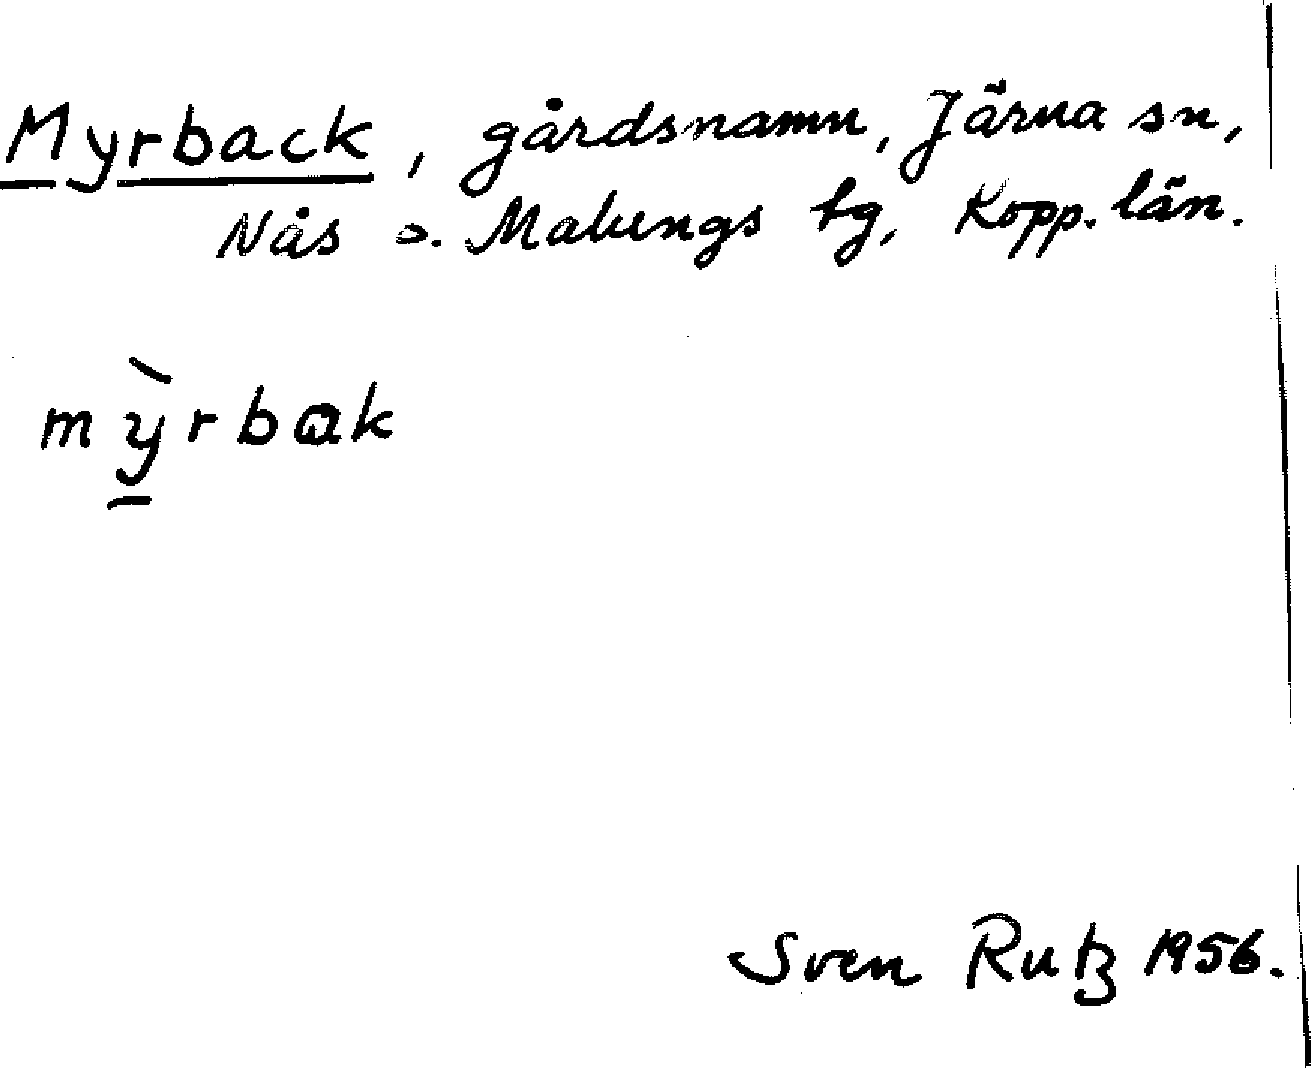 Myrback, gårdsnamn, Järna sn,
Nås o. Malungs tg, Kopp. län.
mỳ̲rbak
Sven Rutz 1956.